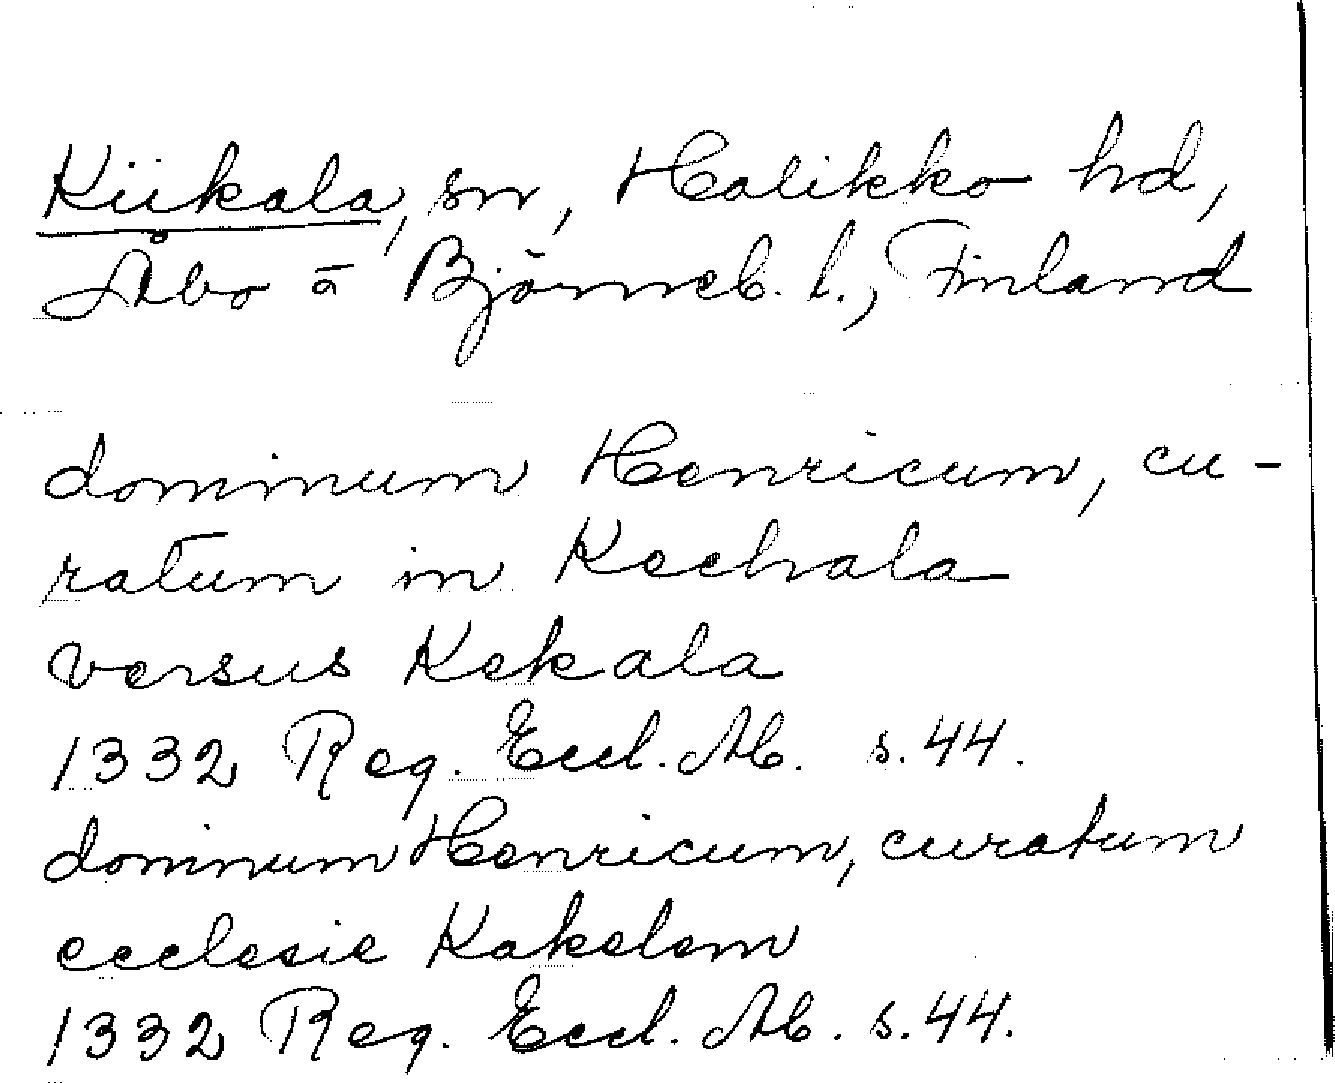 Kiikala, sn, Halikko hd,
Åbo o Björneb. l., Finland
dominum Henricum, cu-
ratum in Kechala
versus Kekala
1332 Reg. Eccl. Ab. s. 44.
dominum Henricum, curatum
ecclesie Kakelem
1332 Reg. Eccl. Ab. s. 44.